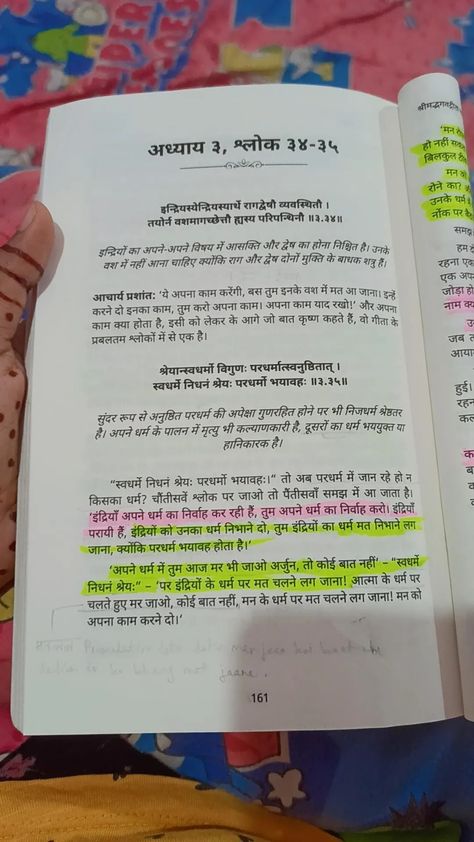 अध्याय ३, श्लोक ३४-३५
इन्द्रियस्येन्द्रियस्यार्थे रागद्वेषौ व्यवस्थितौ ।
तयोर्न वशमागच्छेत्तौ ह्यस्य परिपन्थिनौ ॥३.३४॥
इन्द्रियों का अपने-अपने विषय में आसक्ति और द्वेष का होना निश्चित है। उनके
वश में नहीं आना चाहिए क्योंकि राग और द्वेष दोनों मुक्ति के बाधक शत्रु हैं।
आचार्य प्रशांत: 'ये अपना काम करेंगी, बस तुम इनके वश में मत आ जाना। इन्हें
करने दो इनका काम, तुम करो अपना काम। अपना काम याद रखो!' और अपना
काम क्या होता है, इसी को लेकर के आगे जो बात कृष्ण कहते हैं, वो गीता के
प्रबलतम श्लोकों में से एक है।
श्रेयान्स्वधर्मो विगुणः परधर्मात्स्वनुष्ठितात् ।
स्वधर्मे निधनं श्रेयः परधर्मो भयावहः ॥३.३५॥
सुंदर रूप से अनुष्ठित परधर्म की अपेक्षा गुणरहित होने पर भी निजधर्म श्रेष्ठतर
है। अपने धर्म के पालन में मृत्यु भी कल्याणकारी है, दूसरों का धर्म भययुक्त या
हानिकारक है।
"स्वधर्मे निधनं श्रेयः परधर्मो भयावहः।" तो अब परधर्म में जान रहे हो न
किसका धर्म? चौंतीसवें श्लोक पर जाओ तो पैंतीसवाँ समझ में आ जाता है।
'इंद्रियाँ अपने धर्म का निर्वाह कर रही हैं, तुम अपने धर्म का निर्वाह करो। इंद्रियाँ
परायी हैं, इंद्रियों को उनका धर्म निभाने दो, तुम इंद्रियों का धर्म मत निभाने लग
जाना, क्योंकि परधर्म भयावह होता है।'
'अपने धर्म में तुम आज मर भी जाओ अर्जुन, तो कोई बात नहीं' – "स्वधर्मे
निधनं श्रेयः" – 'पर इंद्रियों के धर्म पर मत चलने लग जाना! आत्मा के धर्म पर
चलते हुए मर जाओ, कोई बात नहीं, मन के धर्म पर मत चलने लग जाना! मन को
अपना काम करने दो।'
मतलब
jaana.
161
श्रीमद्भगवद्गीता
'मन
हो नहीं सक
बिलकुल
मन को
रोने का?
उनके धर्म
नोंक पर
समझ
हम
रहना एक
एक अप
जोड़ा हो
नाम क्य
जब त
आया
हुई।
रहन
क्य